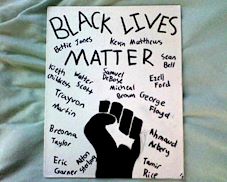 BLACK LIVES
Bettie Jones
Kevin Matthews
MATTER
Sean
Bell
Keith
Childress
Walter
Scott
Samuel
DuBose
Ezell
Ford
Micheal
Brown
Trayvon
Martin
George
Floyd
Breonna
Taylor
Ahmaud
Arbery
Eric
Garner
Alton
Sterling
Tamir
Rice